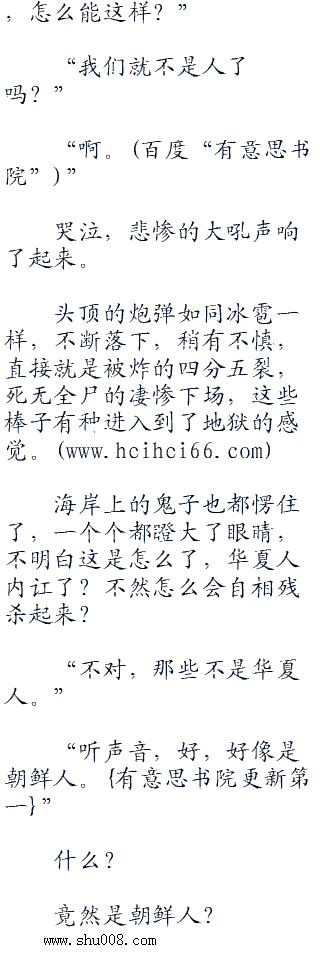 ，怎么能这样？”
“我们就不是人了
吗？”
“啊。(百度“有意思书
院”)”
哭泣，悲惨的大吼声响
了起来。
头顶的炮弹如同冰雹一
样，不断落下，稍有不慎，
直接就是被炸的四分五裂，
死无全尸的凄惨下场，这些
棒子有种进入到了地狱的感
觉。(www.hcihci66.com)
海岸上的鬼子也都愣住
了，一个个都澄大了眼睛，
不明白这是怎么了，华夏人
内讧了？不然怎么会自相残
杀起来？
“不对，那些不是华夏
人。”
“听声音，好，好像是
朝鲜人。{有意思书院更新第
一}”
什么？
竟然是朝鲜人？
www.shu008.com